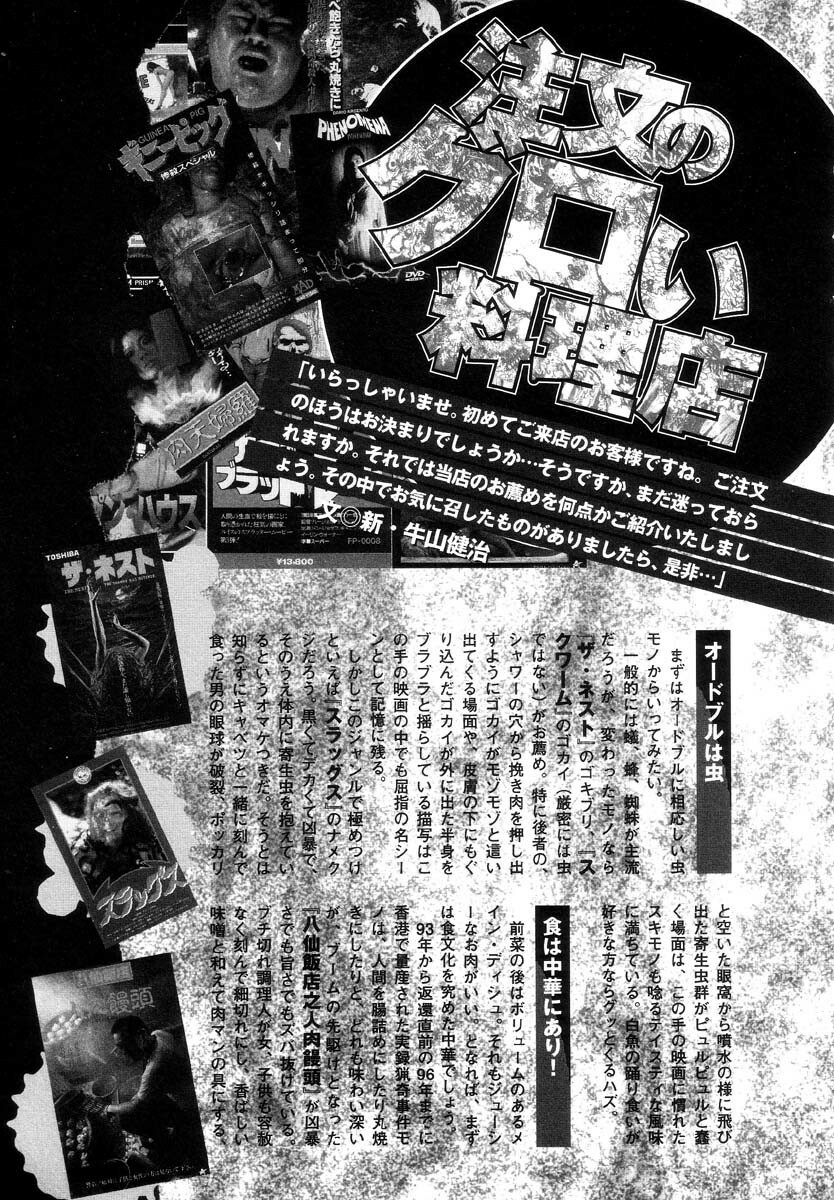 注文の
グロい
料理店
「いらっしゃいませ。初めてご来店のお客様ですね。ご注文
のほうはお決まりでしょうか…そうですか、まだ迷っておら
れますか。それでは当店のお薦めを何点かご紹介いたしまし
ょう。その中でお気に召したものがありましたら、是非…」
文◎新・牛山健治
オードブルは虫
まずはオードブルに相応しい虫
モノからいってみたい。
一般的には蟻、蜂、蜘蛛が主流
だろうが、変わったモノなら
『ザ・ネスト』のゴキブリ、『ス
クワーム』のゴカイ（厳密には虫
ではない）がお薦め。特に後者の、
シャワーの穴から挽き肉を押し出
すようにゴカイがモゾモゾと這い
出てくる場面や、皮膚の下にもぐ
り込んだゴカイが外に出た半身を
ブラブラと揺らしている描写はこ
の手の映画の中でも屈指の名シー
ンとして記憶に残る。
しかしこのジャンルで極めつけ
といえば『スラッグス』のナメク
ジだろう。黒くてデカくて凶暴で、
そのうえ体内に寄生虫を抱えてい
るというオマケつきだ。そうとは
知らずにキャベツと一緒に刻んで
食った男の眼球が破裂、ポッカリ
と空いた眼窩から噴水の様に飛び
出た寄生虫群がピュルピュルと蠢
く場面は、この手の映画に慣れた
スキモノも唸るテイスティな風味
に満ちている。白魚の踊り食いが
好きな方ならグッとくるハズ。
食は中華にあり！
前菜の後はボリュームのあるメ
イン・ディシュ。それもジューシ
ーなお肉がいい。となれば、まず
は食文化を究めた中華でしょう。
93年から返還直前の96年までに
香港で量産された実録猟奇事件モ
ノは、人間を腸詰めにしたり丸焼
きにしたりと、どれも味わい深い
が、ブームの先駆けとなった
『八仙飯店之人肉饅頭』が凶暴
さでも旨さでもズバ抜けている。
ブチ切れ調理人が女、子供も容赦
なく刻んで細切れにし、香ばしい
味噌と和えて肉マンの具にする
べ飽きたら、丸焼きに
GUINEA PIG
ギニーピッグ
惨殺スペシャル
MAD
DARIO ARGENTO
PHENOMENA
DVD
PRISM
肉天婦羅
ハウス
ブラッド
人間の生血で絵を描くことに
¥13,800
FP-0008
TOSHIBA
ザ・ネスト
スラッグス
饅頭